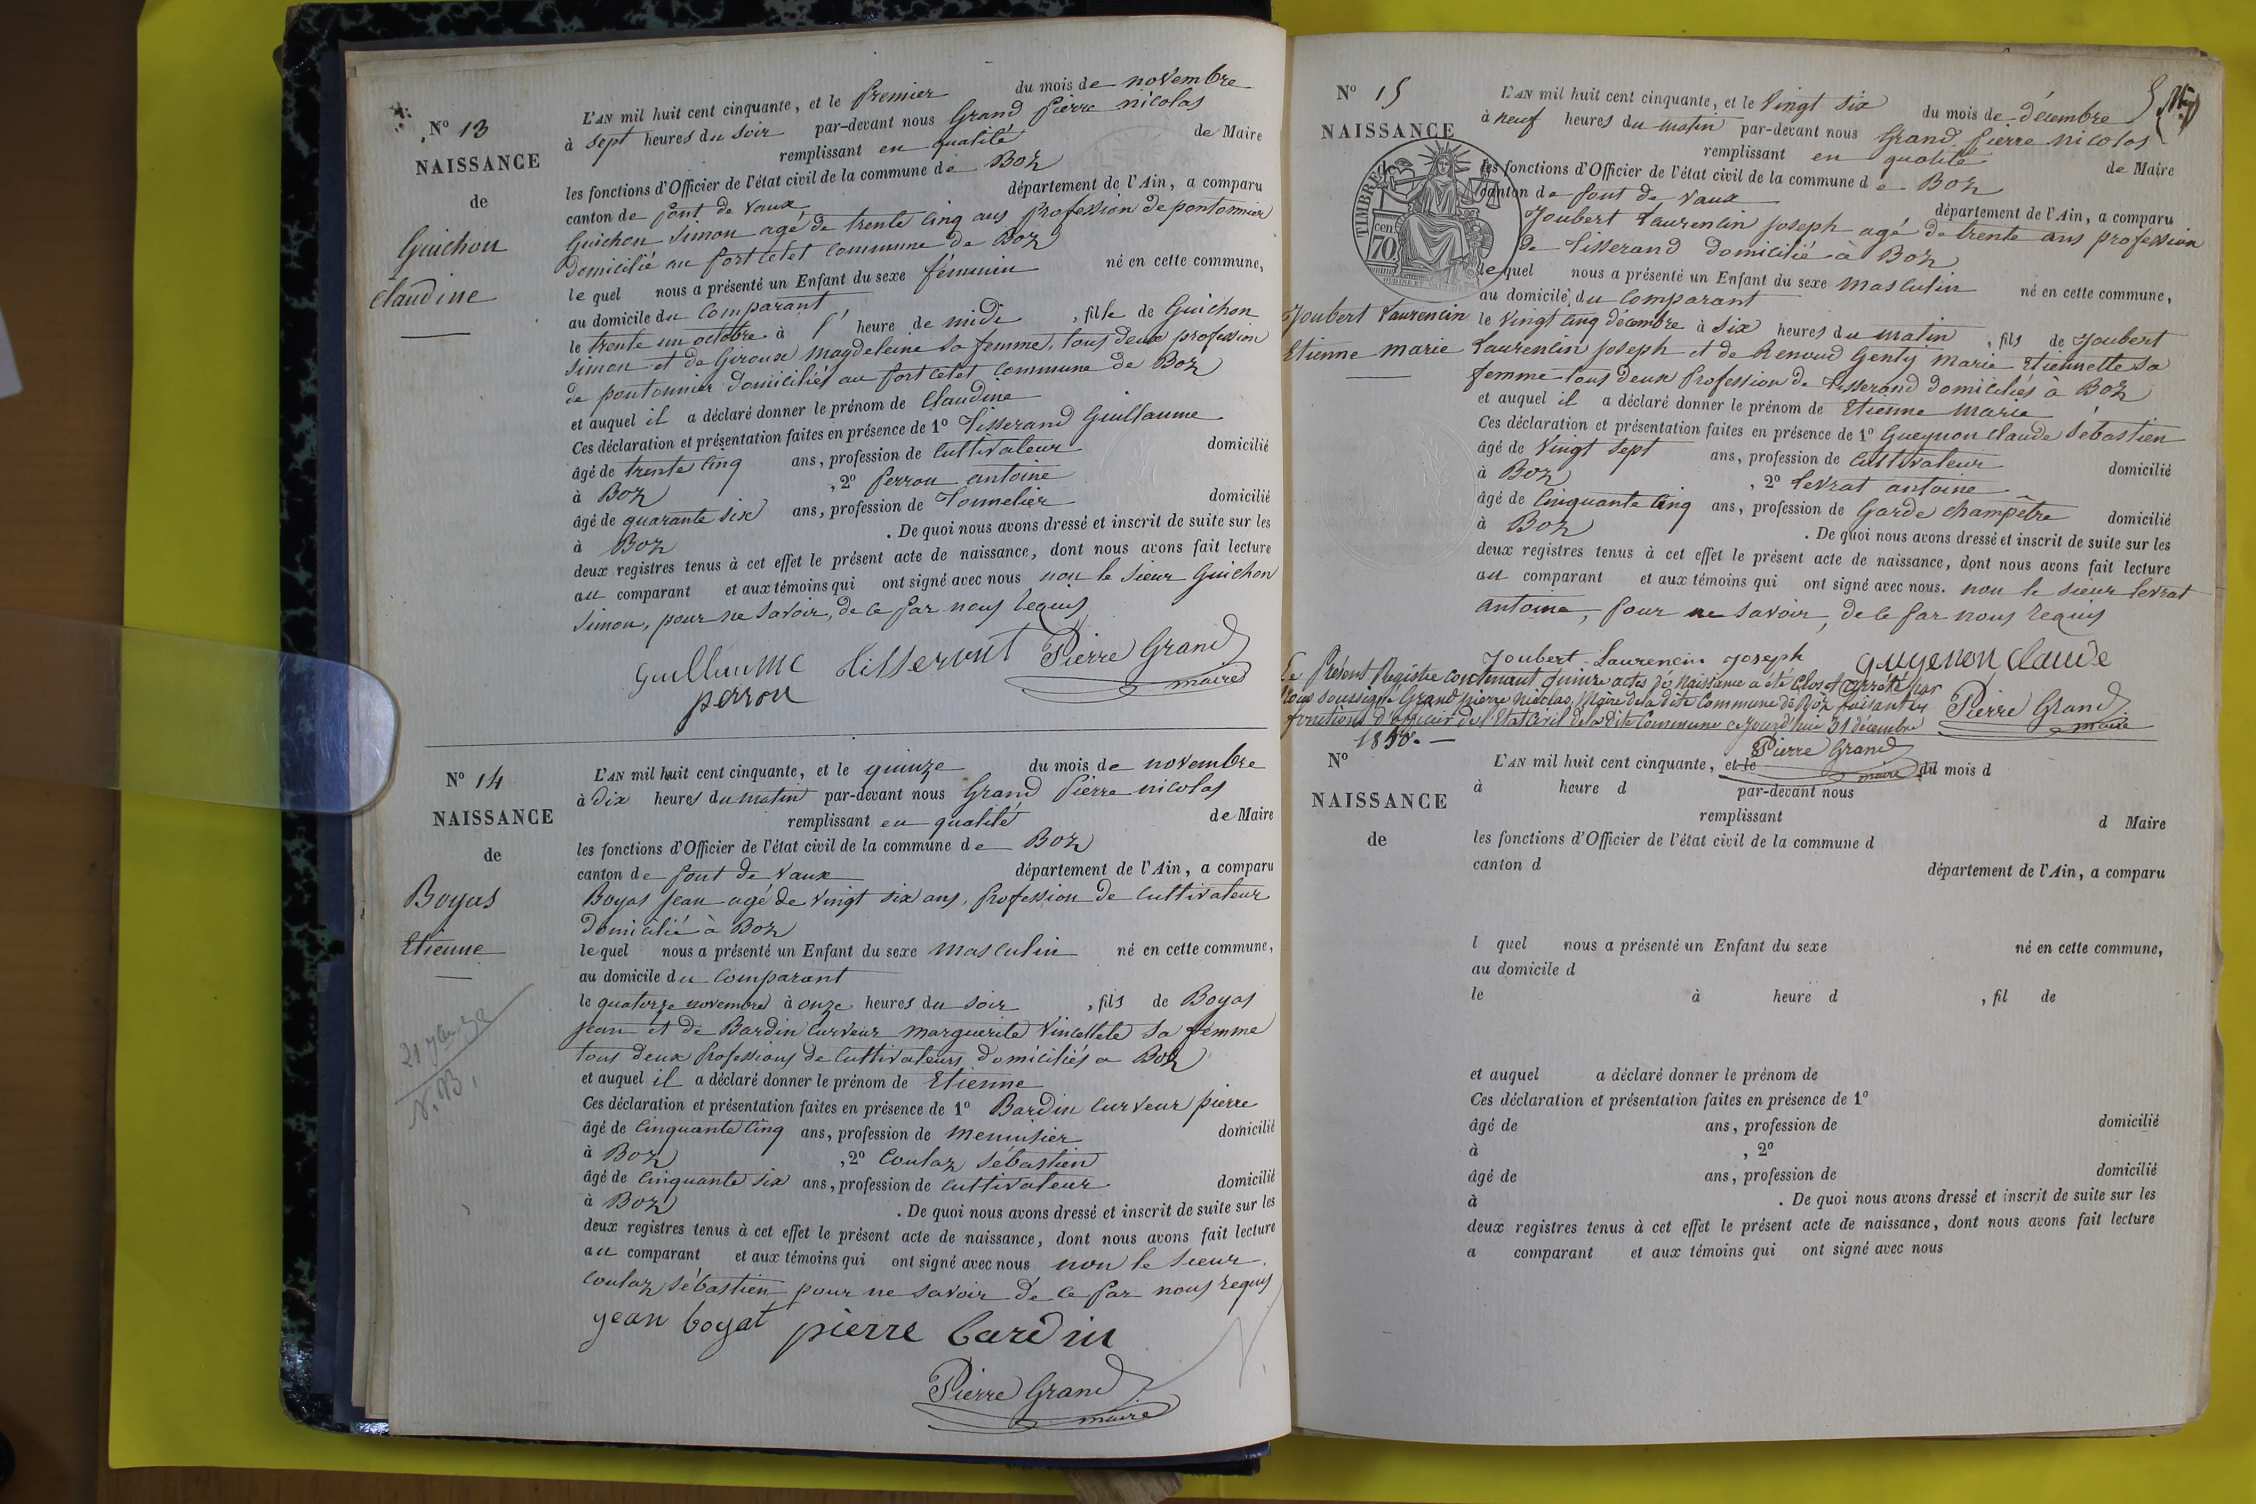 N° 13
NAISSANCE
de
Guichon
Claudine
L'AN mil huit cent cinquante, et le premier du mois de novembre
à sept heures du soir par-devant nous Grand Pierre nicolas
remplissant en qualité de Maire
les fonctions d'Officier de l'état civil de la commune de Boz
canton de pont de Vaux département de l'Ain, a comparu
Guichon Simon agé de trente cinq ans profession de pontonnier
domicilié au fort celet commune de Boz
lequel nous a présenté un Enfant du sexe féminin né en cette commune,
au domicile du comparant
le trente un octobre à l' heure de midi, fille de Guichon
Simon et de Giroux Magdeleine sa femme, tous deux profession
de pontonnier domiciliés au fort celet commune de Boz
et auquel il a déclaré donner le prénom de Claudine
Ces déclaration et présentation faites en présence de 1° Tisserand Guillaume
âgé de trente cinq ans, profession de cultivateur domicilié
à Boz, 2° perron antoine
âgé de quarante six ans, profession de Tonnelier domicilié
à Boz. De quoi nous avons dressé et inscrit de suite sur les
deux registres tenus à cet effet le présent acte de naissance, dont nous avons fait lecture
au comparant et aux témoins qui ont signé avec nous non le sieur Guichon
Simon, pour ne savoir, de ce par nous requis
Guillaume tisserent Pierre Grand
perron maire
N° 14
NAISSANCE
de
Boyas
Etienne
L'AN mil huit cent cinquante, et le quinze du mois de novembre
à dix heures du matin par-devant nous Grand Pierre nicolas
remplissant en qualité de Maire
les fonctions d'Officier de l'état civil de la commune de Boz
canton de pont de Vaux département de l'Ain, a comparu
Boyas jean agé de vingt six ans, profession de cultivateur
domicilié à Boz
lequel nous a présenté un Enfant du sexe masculin né en cette commune,
au domicile du comparant
le quatorze novembre à onze heures du soir, fils de Boyas
jean et de Bardin curveur marguerite Vincellete sa femme
tous deux professions de cultivateurs domiciliés a Boz
et auquel il a déclaré donner le prénom de Etienne
Ces déclaration et présentation faites en présence de 1° Bardin curveur pierre
âgé de cinquante cinq ans, profession de menuisier domicilié
à Boz, 2° Coulaz Sébastien
âgé de cinquante six ans, profession de cultivateur domicilié
à Boz. De quoi nous avons dressé et inscrit de suite sur les
deux registres tenus à cet effet le présent acte de naissance, dont nous avons fait lecture
au comparant et aux témoins qui ont signé avec nous non le sieur
Coulaz Sébastien pour ne savoir de ce par nous requis
jean boyat pierre bardin
Pierre Grand
maire
N° 15
NAISSANCE
TIMBRE
70 cen
Joubert Laurencin
Etienne Marie
L'AN mil huit cent cinquante, et le vingt six du mois de décembre
à neuf heures du matin par-devant nous Grand Pierre nicolas
remplissant en qualité de Maire
les fonctions d'Officier de l'état civil de la commune de Boz
canton de pont de Vaux département de l'Ain, a comparu
Joubert Laurencin joseph agé de trente ans profession
de Tisserand domicilié à Boz
lequel nous a présenté un Enfant du sexe masculin né en cette commune,
au domicile du comparant
le vingt cinq décembre à six heures du matin, fils de Joubert
Laurencin joseph et de Renoud Genty Marie Etiennette sa
femme tous deux profession de Tisserand domiciliés à Boz
et auquel il a déclaré donner le prénom de Etienne Marie
Ces déclaration et présentation faites en présence de 1° Gueynon claude Sébastien
âgé de vingt sept ans, profession de cultivateur domicilié
à Boz, 2° Levrat antoine
âgé de cinquante cinq ans, profession de Garde champêtre domicilié
à Boz. De quoi nous avons dressé et inscrit de suite sur les
deux registres tenus à cet effet le présent acte de naissance, dont nous avons fait lecture
au comparant et aux témoins qui ont signé avec nous. non le sieur Levrat
antoine, pour ne savoir, de ce par nous requis
Joubert Laurencin joseph gugenon claude
Le Présent Registre contenant quinze actes de Naissance a été clos et arrêté par
Nous soussigné Grand pierre Nicolas, Maire de la dite Commune de Boz faisant les
fonctions d'officier de l'Etat Civil de la dite Commune ce jourd'hui 31 décembre
1850.
Pierre Grand
maire
Pierre Grand
maire
N°
NAISSANCE
de
L'AN mil huit cent cinquante, et le du mois d
à heure d par-devant nous
remplissant d Maire
les fonctions d'Officier de l'état civil de la commune d
canton d département de l'Ain, a comparu
l quel nous a présenté un Enfant du sexe né en cette commune,
au domicile d
le à heure d, fil de
et auquel a déclaré donner le prénom de
Ces déclaration et présentation faites en présence de 1°
âgé de ans, profession de domicilié
à, 2°
âgé de ans, profession de domicilié
à. De quoi nous avons dressé et inscrit de suite sur les
deux registres tenus à cet effet le présent acte de naissance, dont nous avons fait lecture
a comparant et aux témoins qui ont signé avec nous